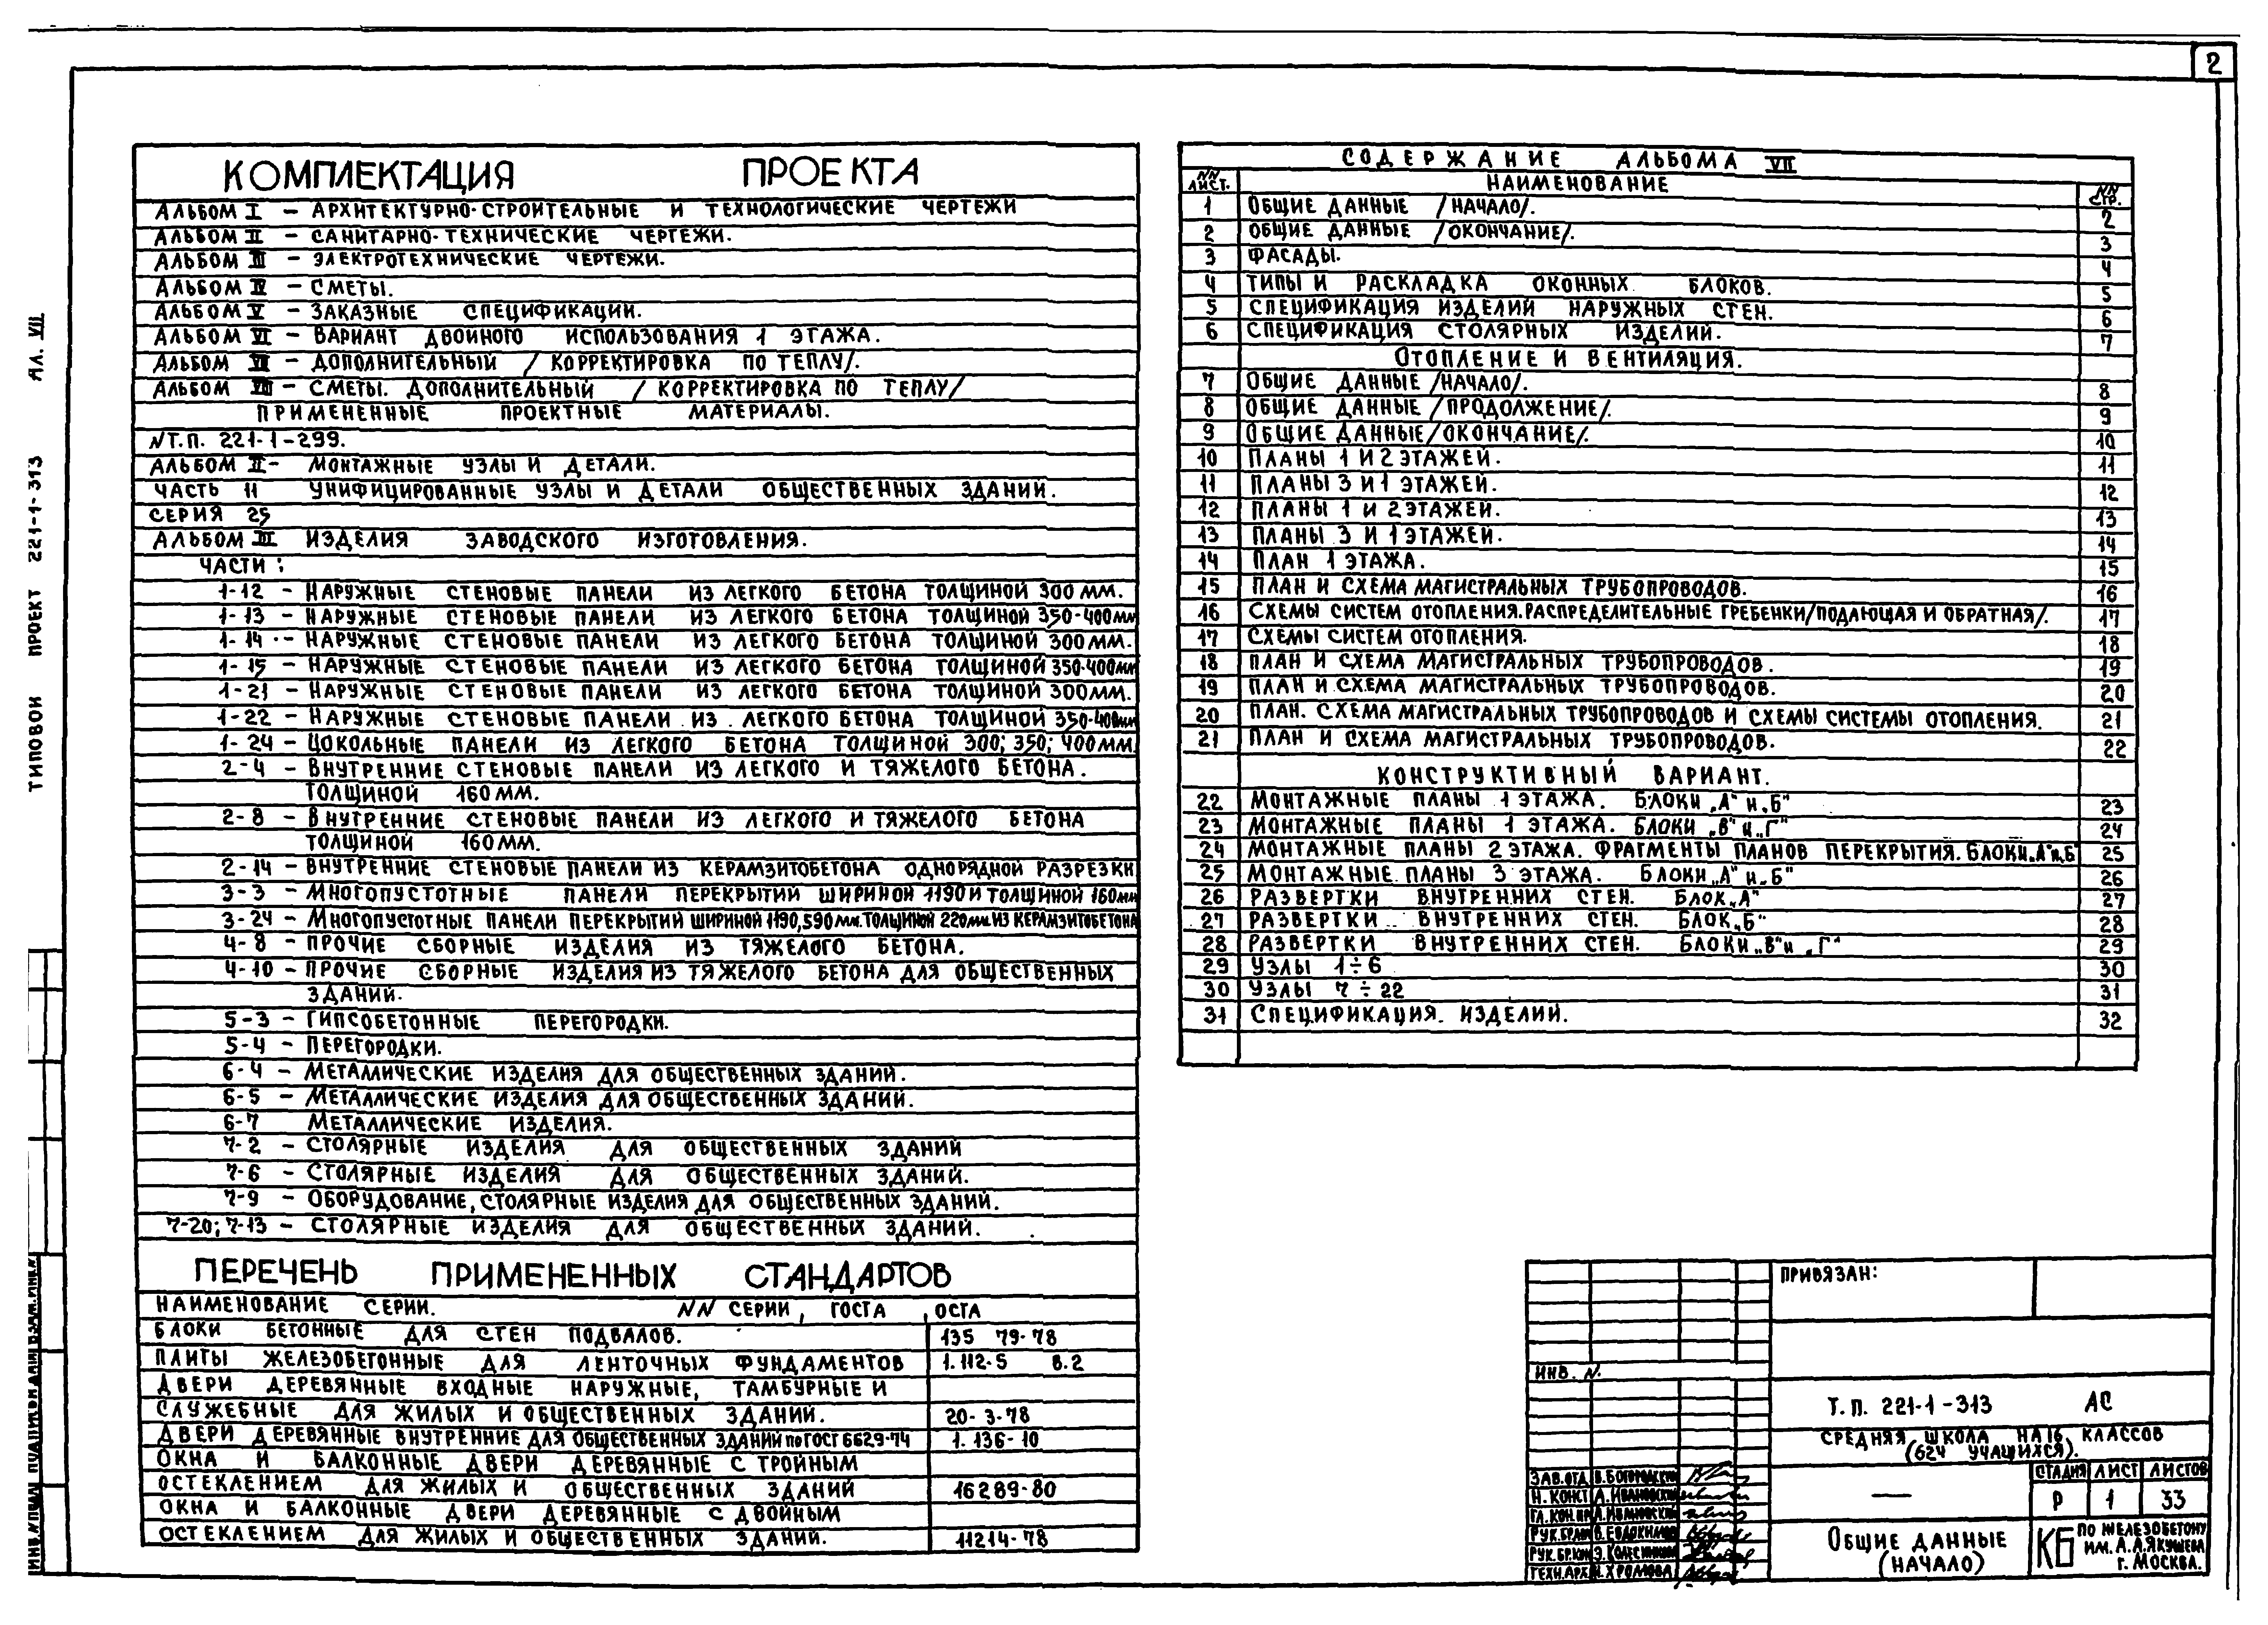 2
КОМПЛЕКТАЦИЯ ПРОЕКТА
АЛЬБОМ I – АРХИТЕКТУРНО-СТРОИТЕЛЬНЫЕ И ТЕХНОЛОГИЧЕСКИЕ ЧЕРТЕЖИ
АЛЬБОМ II – САНИТАРНО-ТЕХНИЧЕСКИЕ ЧЕРТЕЖИ.
АЛЬБОМ III – ЭЛЕКТРОТЕХНИЧЕСКИЕ ЧЕРТЕЖИ.
АЛЬБОМ IV – СМЕТЫ.
АЛЬБОМ V – ЗАКАЗНЫЕ СПЕЦИФИКАЦИИ.
АЛЬБОМ VI – ВАРИАНТ ДВОЙНОГО ИСПОЛЬЗОВАНИЯ 1 ЭТАЖА.
АЛЬБОМ VII – ДОПОЛНИТЕЛЬНЫЙ /КОРРЕКТИРОВКА ПО ТЕПЛУ/.
АЛЬБОМ VIII – СМЕТЫ. ДОПОЛНИТЕЛЬНЫЙ /КОРРЕКТИРОВКА ПО ТЕПЛУ/
ПРИМЕНЕННЫЕ ПРОЕКТНЫЕ МАТЕРИАЛЫ.
NТ.П. 221-1-299.
АЛЬБОМ II – МОНТАЖНЫЕ УЗЛЫ И ДЕТАЛИ.
ЧАСТЬ 11 УНИФИЦИРОВАННЫЕ УЗЛЫ И ДЕТАЛИ ОБЩЕСТВЕННЫХ ЗДАНИЙ.
СЕРИЯ 25
АЛЬБОМ III ИЗДЕЛИЯ ЗАВОДСКОГО ИЗГОТОВЛЕНИЯ.
ЧАСТИ:
1-12 – НАРУЖНЫЕ СТЕНОВЫЕ ПАНЕЛИ ИЗ ЛЕГКОГО БЕТОНА ТОЛЩИНОЙ 300 ММ.
1-13 – НАРУЖНЫЕ СТЕНОВЫЕ ПАНЕЛИ ИЗ ЛЕГКОГО БЕТОНА ТОЛЩИНОЙ 350-400мм
1-14 – НАРУЖНЫЕ СТЕНОВЫЕ ПАНЕЛИ ИЗ ЛЕГКОГО БЕТОНА ТОЛЩИНОЙ 300 ММ.
1-15 – НАРУЖНЫЕ СТЕНОВЫЕ ПАНЕЛИ ИЗ ЛЕГКОГО БЕТОНА ТОЛЩИНОЙ 350-400мм
1-21 – НАРУЖНЫЕ СТЕНОВЫЕ ПАНЕЛИ ИЗ ЛЕГКОГО БЕТОНА ТОЛЩИНОЙ 300ММ.
1-22 – НАРУЖНЫЕ СТЕНОВЫЕ ПАНЕЛИ ИЗ ЛЕГКОГО БЕТОНА ТОЛЩИНОЙ 350-400мм
1-24 – ЦОКОЛЬНЫЕ ПАНЕЛИ ИЗ ЛЕГКОГО БЕТОНА ТОЛЩИНОЙ 300; 350; 400 ММ.
2-4 – ВНУТРЕННИЕ СТЕНОВЫЕ ПАНЕЛИ ИЗ ЛЕГКОГО И ТЯЖЕЛОГО БЕТОНА.
ТОЛЩИНОЙ 160 ММ.
2-8 – ВНУТРЕННИЕ СТЕНОВЫЕ ПАНЕЛИ ИЗ ЛЕГКОГО И ТЯЖЕЛОГО БЕТОНА
ТОЛЩИНОЙ 160 ММ.
2-14 – ВНУТРЕННИЕ СТЕНОВЫЕ ПАНЕЛИ ИЗ КЕРАМЗИТОБЕТОНА ОДНОРЯДНОЙ РАЗРЕЗКИ
3-3 – МНОГОПУСТОТНЫЕ ПАНЕЛИ ПЕРЕКРЫТИЙ ШИРИНОЙ 1190 И ТОЛЩИНОЙ 160мм
3-24 – МНОГОПУСТОТНЫЕ ПАНЕЛИ ПЕРЕКРЫТИЙ ШИРИНОЙ 1190, 590 мм. ТОЛЩИНОЙ 220мм. ИЗ КЕРАМЗИТОБЕТОНА
4-8 – ПРОЧИЕ СБОРНЫЕ ИЗДЕЛИЯ ИЗ ТЯЖЕЛОГО БЕТОНА.
4-10 – ПРОЧИЕ СБОРНЫЕ ИЗДЕЛИЯ ИЗ ТЯЖЕЛОГО БЕТОНА ДЛЯ ОБЩЕСТВЕННЫХ
ЗДАНИЙ.
5-3 – ГИПСОБЕТОННЫЕ ПЕРЕГОРОДКИ.
5-4 – ПЕРЕГОРОДКИ.
6-4 – МЕТАЛЛИЧЕСКИЕ ИЗДЕЛИЯ ДЛЯ ОБЩЕСТВЕННЫХ ЗДАНИЙ.
6-5 – МЕТАЛЛИЧЕСКИЕ ИЗДЕЛИЯ ДЛЯ ОБЩЕСТВЕННЫХ ЗДАНИЙ.
6-7 МЕТАЛЛИЧЕСКИЕ ИЗДЕЛИЯ.
7-2 – СТОЛЯРНЫЕ ИЗДЕЛИЯ ДЛЯ ОБЩЕСТВЕННЫХ ЗДАНИЙ
7-6 – СТОЛЯРНЫЕ ИЗДЕЛИЯ ДЛЯ ОБЩЕСТВЕННЫХ ЗДАНИЙ.
7-9 – ОБОРУДОВАНИЕ, СТОЛЯРНЫЕ ИЗДЕЛИЯ ДЛЯ ОБЩЕСТВЕННЫХ ЗДАНИЙ.
7-20; 7-13 – СТОЛЯРНЫЕ ИЗДЕЛИЯ ДЛЯ ОБЩЕСТВЕННЫХ ЗДАНИЙ.
ПЕРЕЧЕНЬ ПРИМЕНЕННЫХ СТАНДАРТОВ
НАИМЕНОВАНИЕ СЕРИИ. NN СЕРИИ, ГОСТА, ОСТА
БЛОКИ БЕТОННЫЕ ДЛЯ СТЕН ПОДВАЛОВ. 135 79-78
ПЛИТЫ ЖЕЛЕЗОБЕТОННЫЕ ДЛЯ ЛЕНТОЧНЫХ ФУНДАМЕНТОВ 1.112-5 В.2
ДВЕРИ ДЕРЕВЯННЫЕ ВХОДНЫЕ НАРУЖНЫЕ, ТАМБУРНЫЕ И
СЛУЖЕБНЫЕ ДЛЯ ЖИЛЫХ И ОБЩЕСТВЕННЫХ ЗДАНИЙ. 20-3-78
ДВЕРИ ДЕРЕВЯННЫЕ ВНУТРЕННИЕ ДЛЯ ОБЩЕСТВЕННЫХ ЗДАНИЙ по ГОСТ 6629-74 1.136-10
ОКНА И БАЛКОННЫЕ ДВЕРИ ДЕРЕВЯННЫЕ С ТРОЙНЫМ
ОСТЕКЛЕНИЕМ ДЛЯ ЖИЛЫХ И ОБЩЕСТВЕННЫХ ЗДАНИЙ 16289-80
ОКНА И БАЛКОННЫЕ ДВЕРИ ДЕРЕВЯННЫЕ С ДВОЙНЫМ
ОСТЕКЛЕНИЕМ ДЛЯ ЖИЛЫХ И ОБЩЕСТВЕННЫХ ЗДАНИЙ. 11214-78
СОДЕРЖАНИЕ АЛЬБОМА VII
NN ЛИСТ. НАИМЕНОВАНИЕ NN СТР.
1 ОБЩИЕ ДАННЫЕ /НАЧАЛО/. 2
2 ОБЩИЕ ДАННЫЕ /ОКОНЧАНИЕ/. 3
3 ФАСАДЫ. 4
4 ТИПЫ И РАСКЛАДКА ОКОННЫХ БЛОКОВ. 5
5 СПЕЦИФИКАЦИЯ ИЗДЕЛИЙ НАРУЖНЫХ СТЕН. 6
6 СПЕЦИФИКАЦИЯ СТОЛЯРНЫХ ИЗДЕЛИЙ. 7
ОТОПЛЕНИЕ И ВЕНТИЛЯЦИЯ.
7 ОБЩИЕ ДАННЫЕ /НАЧАЛО/. 8
8 ОБЩИЕ ДАННЫЕ /ПРОДОЛЖЕНИЕ/. 9
9 ОБЩИЕ ДАННЫЕ/ОКОНЧАНИЕ/. 10
10 ПЛАНЫ 1 И 2 ЭТАЖЕЙ. 11
11 ПЛАНЫ 3 И 1 ЭТАЖЕЙ. 12
12 ПЛАНЫ 1 И 2 ЭТАЖЕЙ. 13
13 ПЛАНЫ 3 И 1 ЭТАЖЕЙ. 14
14 ПЛАН 1 ЭТАЖА. 15
15 ПЛАН И СХЕМА МАГИСТРАЛЬНЫХ ТРУБОПРОВОДОВ. 16
16 СХЕМЫ СИСТЕМ ОТОПЛЕНИЯ. РАСПРЕДЕЛИТЕЛЬНЫЕ ГРЕБЕНКИ/ПОДАЮЩАЯ И ОБРАТНАЯ/. 17
17 СХЕМЫ СИСТЕМ ОТОПЛЕНИЯ. 18
18 ПЛАН И СХЕМА МАГИСТРАЛЬНЫХ ТРУБОПРОВОДОВ. 19
19 ПЛАН И СХЕМА МАГИСТРАЛЬНЫХ ТРУБОПРОВОДОВ. 20
20 ПЛАН. СХЕМА МАГИСТРАЛЬНЫХ ТРУБОПРОВОДОВ И СХЕМЫ СИСТЕМЫ ОТОПЛЕНИЯ. 21
21 ПЛАН И СХЕМА МАГИСТРАЛЬНЫХ ТРУБОПРОВОДОВ. 22
КОНСТРУКТИВНЫЙ ВАРИАНТ.
22 МОНТАЖНЫЕ ПЛАНЫ 1 ЭТАЖА. БЛОКИ „А" и „Б" 23
23 МОНТАЖНЫЕ ПЛАНЫ 1 ЭТАЖА. БЛОКИ „В" и „Г" 24
24 МОНТАЖНЫЕ ПЛАНЫ 2 ЭТАЖА. ФРАГМЕНТЫ ПЛАНОВ ПЕРЕКРЫТИЯ. БЛОКИ „А" и „Б" 25
25 МОНТАЖНЫЕ ПЛАНЫ 3 ЭТАЖА. БЛОКИ „А" и „Б" 26
26 РАЗВЕРТКИ ВНУТРЕННИХ СТЕН. БЛОК „А" 27
27 РАЗВЕРТКИ ВНУТРЕННИХ СТЕН. БЛОК „Б" 28
28 РАЗВЕРТКИ ВНУТРЕННИХ СТЕН. БЛОКИ „В" и „Г" 29
29 УЗЛЫ 1÷6 30
30 УЗЛЫ 7÷22 31
31 СПЕЦИФИКАЦИЯ ИЗДЕЛИЙ. 32
ТИПОВОЙ ПРОЕКТ 221-1-313 АЛ. VII
ПРИВЯЗАН:
ИНВ. N.
Т.П. 221-1-313 АС
СРЕДНЯЯ ШКОЛА НА 16 КЛАССОВ
(624 УЧАЩИХСЯ).
СТАДИЯ ЛИСТ ЛИСТОВ
Р 1 33
ЗАВ.ОТД В.БОГОРОДСКИЙ
Н. КОНСТ А.ИВАНОВСКИЙ
ГЛ.КОН.ПР А.ИВАНОВСКИЙ
РУК.БР.АРХ В.ЕВДОКИМОВ
РУК.БР.КОН Э.КОЛЕСНИКОВ
ТЕХН.АРХ Н.ХРОМОВА
ОБЩИЕ ДАННЫЕ
(НАЧАЛО)
КБ ПО ЖЕЛЕЗОБЕТОНУ
ИМ. А.А.ЯКУШЕВА
Г. МОСКВА.